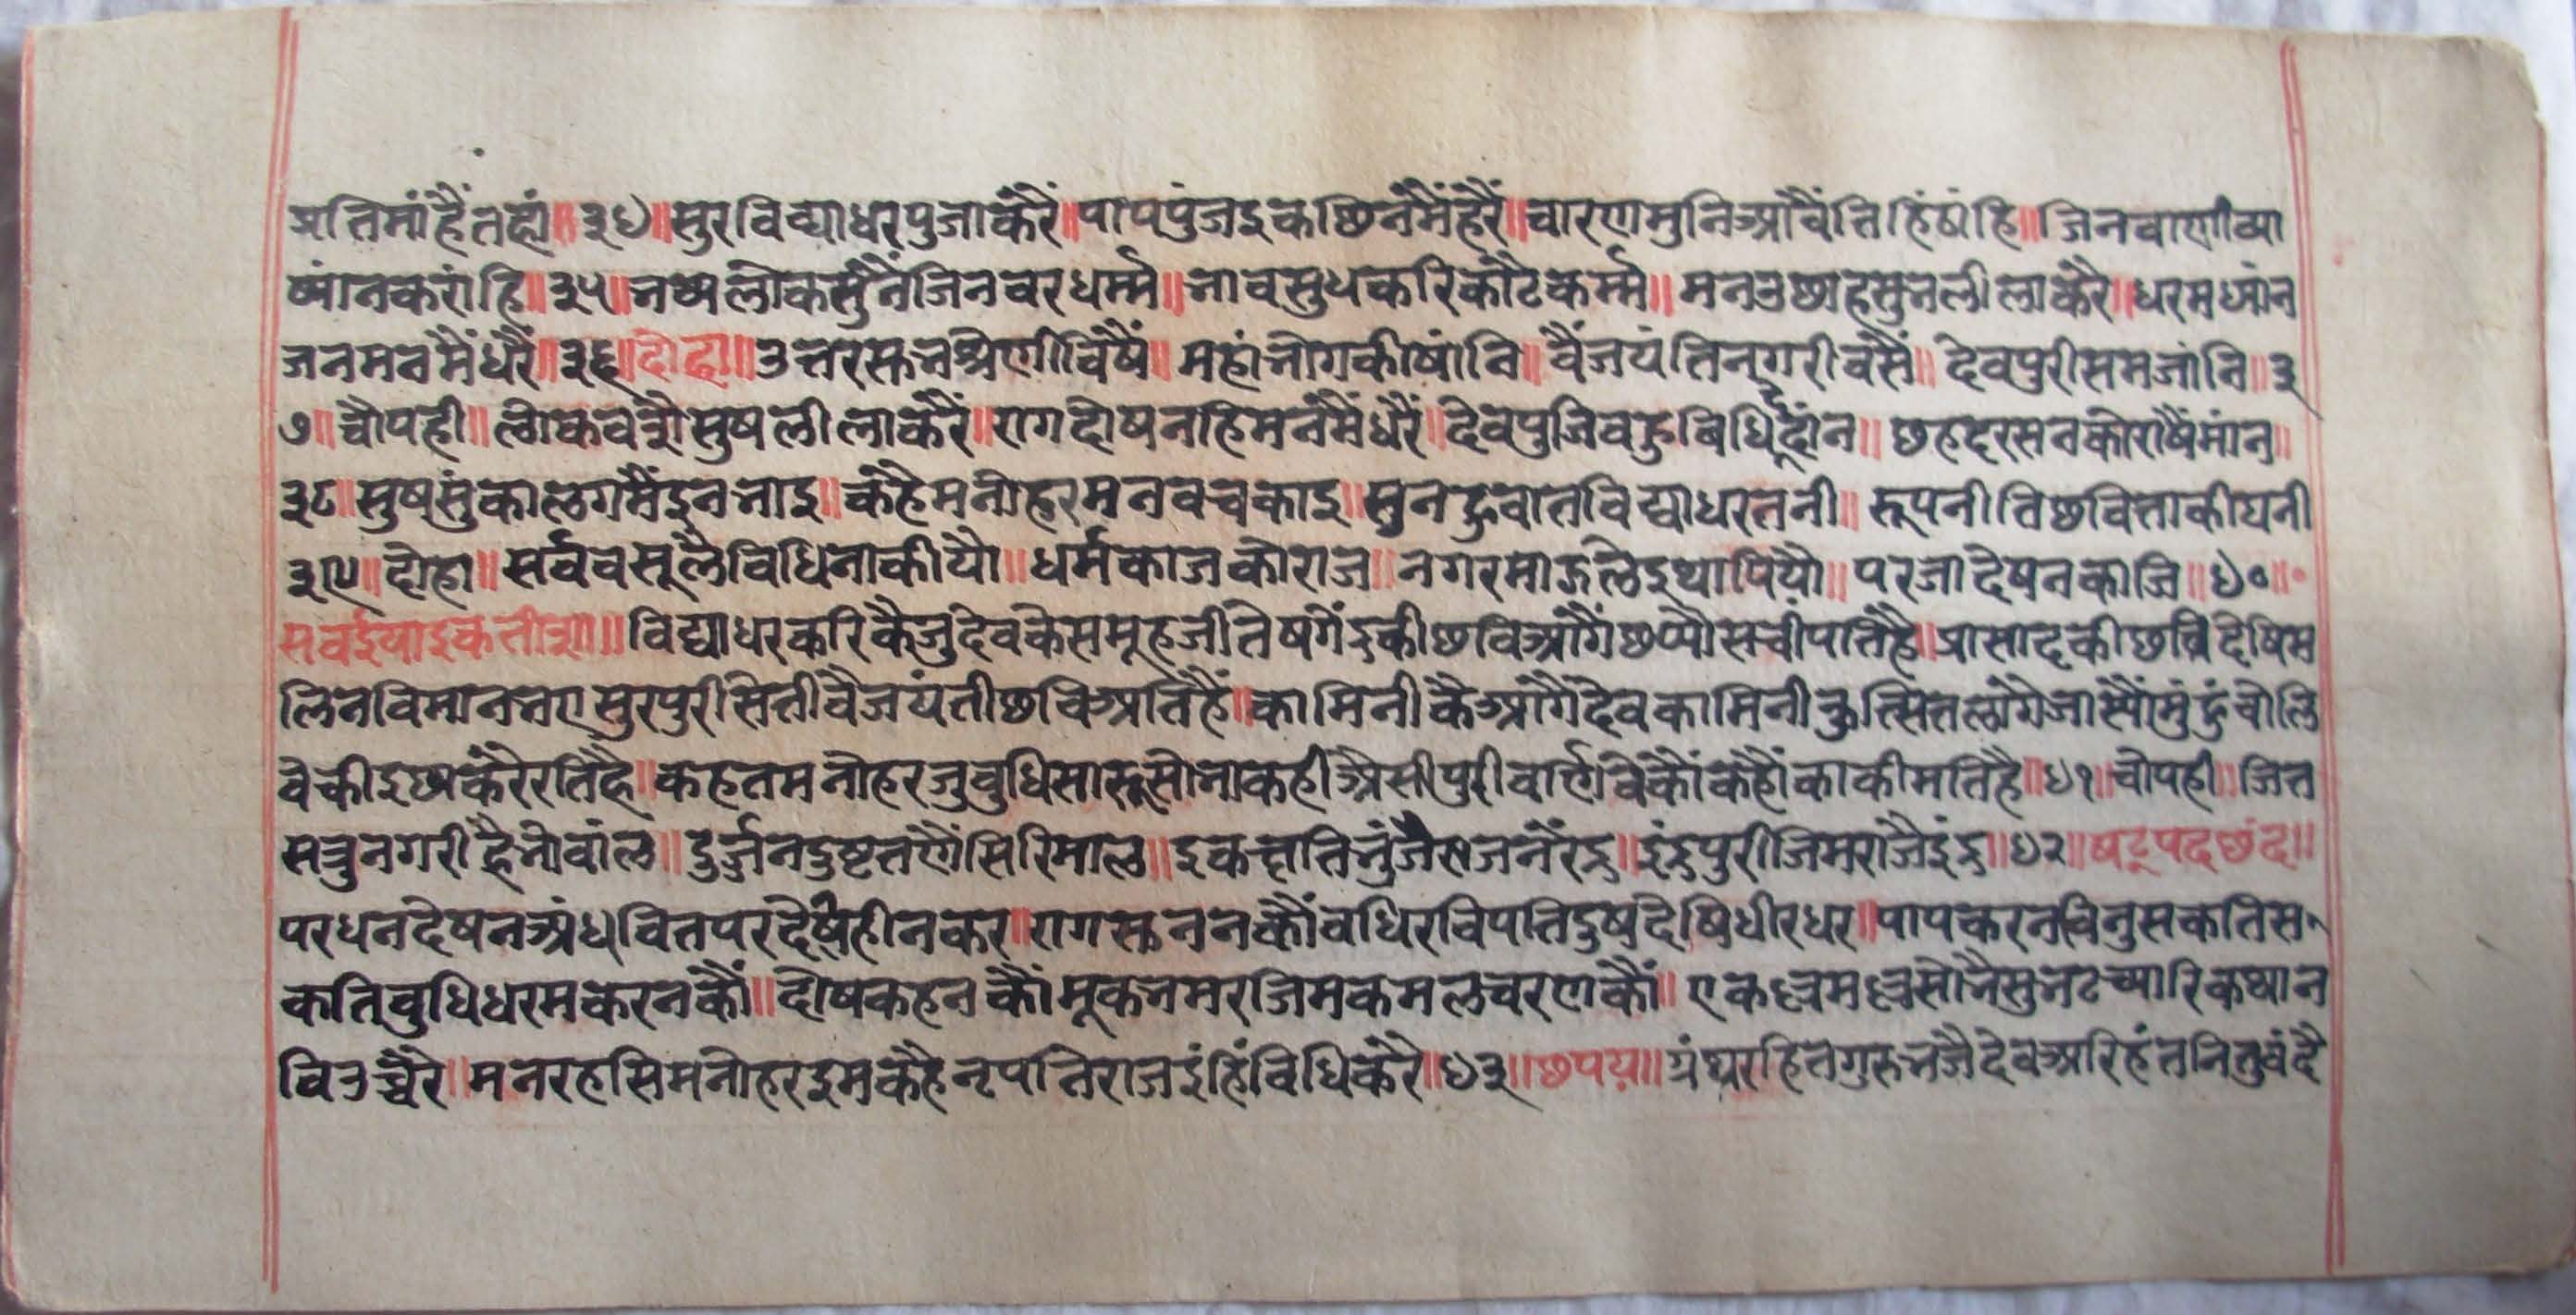 प्रतिमांहैंतहां॥३४॥सुरविद्याधरपुजाकरैं॥पापपुंजइकछिनमैंहरैं॥चारणमुनिआवैंतिहिंठांहि॥जिनवाणीव्या
ष्यांनकरांहि॥३५॥भव्यलोकसुंनैंजिनवरधर्म्म॥भावसुधकरिकाटैकर्म्म॥मनउछाहसुभलीलाकरै॥धरमध्यांन
जनमनमैंधरैं॥३६॥दोहा॥उत्तरस्तनश्रेणीविषैं॥महांभोगकीषांनि॥वैंजयंतिनगरीवसैं॥देवपुरीसमजांनि॥३
७॥चौपही॥लोकवत्रोसुषलीलाकरैं॥रागदोषनहिमनमैंधरैं॥देवपुजिवहुबिधिदांन॥छहदरसनकोराषैंमांन॥
३८॥सुषसुंकालगमैंइनभाइ॥कहैमनोहरमनवचकाइ॥सुनहुवातविद्याधरतनी॥रूपनीतिछवित्ताकीघनी
३९॥दोहा॥सर्ववसूलैविधिनाकीयौ॥धर्मकाजकोराज॥नगरमाझलेइथापियौ॥परजादेषनकाजि॥४०॥
सवईयाइकतीसा॥विद्याधरकरिकैजुदेवकेसमूहजीतेषगेंद्रकीछविआगैंछप्यौसचीपतिहै॥प्रासादकीछविदेषिम
लिनविमानभएसुरपुरीसेतीवैजयंतीछविअतिहैं॥कामिनीकैआगैदेवकामिनीकुत्सितलागेजास्यौंमुंहुंबोलि
वेकीइछाकरैरतिहै॥कहतमनोहरजुबुधिसारूसोभाकहीअैसीपुरीवर्णवेकौंकहौंकाकीमतिहै॥४१॥चौपही॥जित
सत्रुनगरीहैभोवाल॥दुर्जनदुष्टतणैंसिरिमाल॥इकछत्तिभुंजैराजनरेंद्र॥इंद्रपुरीजिमराजैइंद्र॥४२॥षट्पदछंद॥
परधनदेषनअंधवितपरदेषैहीनकर॥रागस्तननकौंवधिरविपत्तिदुषदेषिधीरधर॥पापकरनविनुसकतिस
कतिबुधिधरमकरनकौं॥दोषकहनकौंमूकभमरजिमकमलचरणकौं॥एकछत्रमछत्रसोभैसुभटच्यारिकथान
विउच्चैरे॥मनरहसिमनोहरइमकहैनृपतिराजइंहिंविधिकरै॥४३॥छपय॥ग्रंथरहितगुरुभजैदेवअरिहंतनितुवंदै